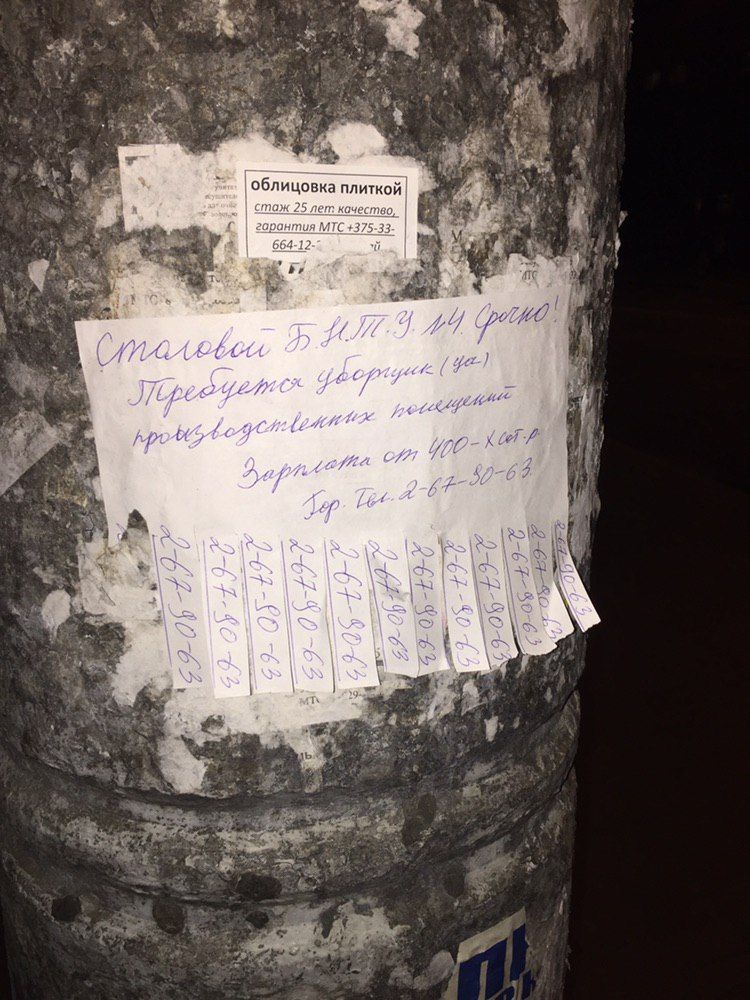 облицовка плиткой
стаж 25 лет: качество,
гарантия МТС +375-33-
664-12-
Столовой Б.Н.Т.У. №4 Срочно!
Требуется уборщик (ца)
производственных помещений
Зарплата от 400-х бел. р.
Гор. Тел. 2-67-90-63
2-67-90-63
2-67-90-63
2-67-90-63
2-67-90-63
2-67-90-63
2-67-90-63
2-67-90-63
2-67-90-63
2-67-90-63
2-67-90-63
2-67-90-63
2-67-90-63